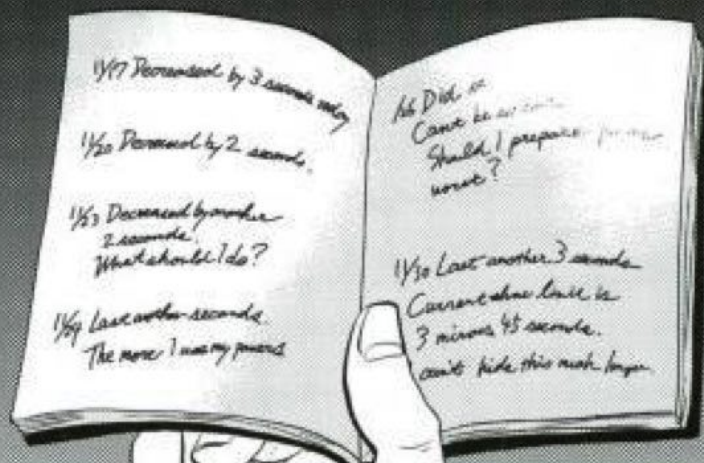 11/17 Decreased by 3 seconds today
11/20 Decreased by 2 seconds.
11/23 Decreased by another
2 seconds!
What should I do?
11/24 Lost another seconds.
The more I use my powers
Did
Can't be
Should I prepare for
worst?
11/30 Lost another 3 seconds
Current time limit is
3 minutes 45 seconds.
can't hide this much longer.